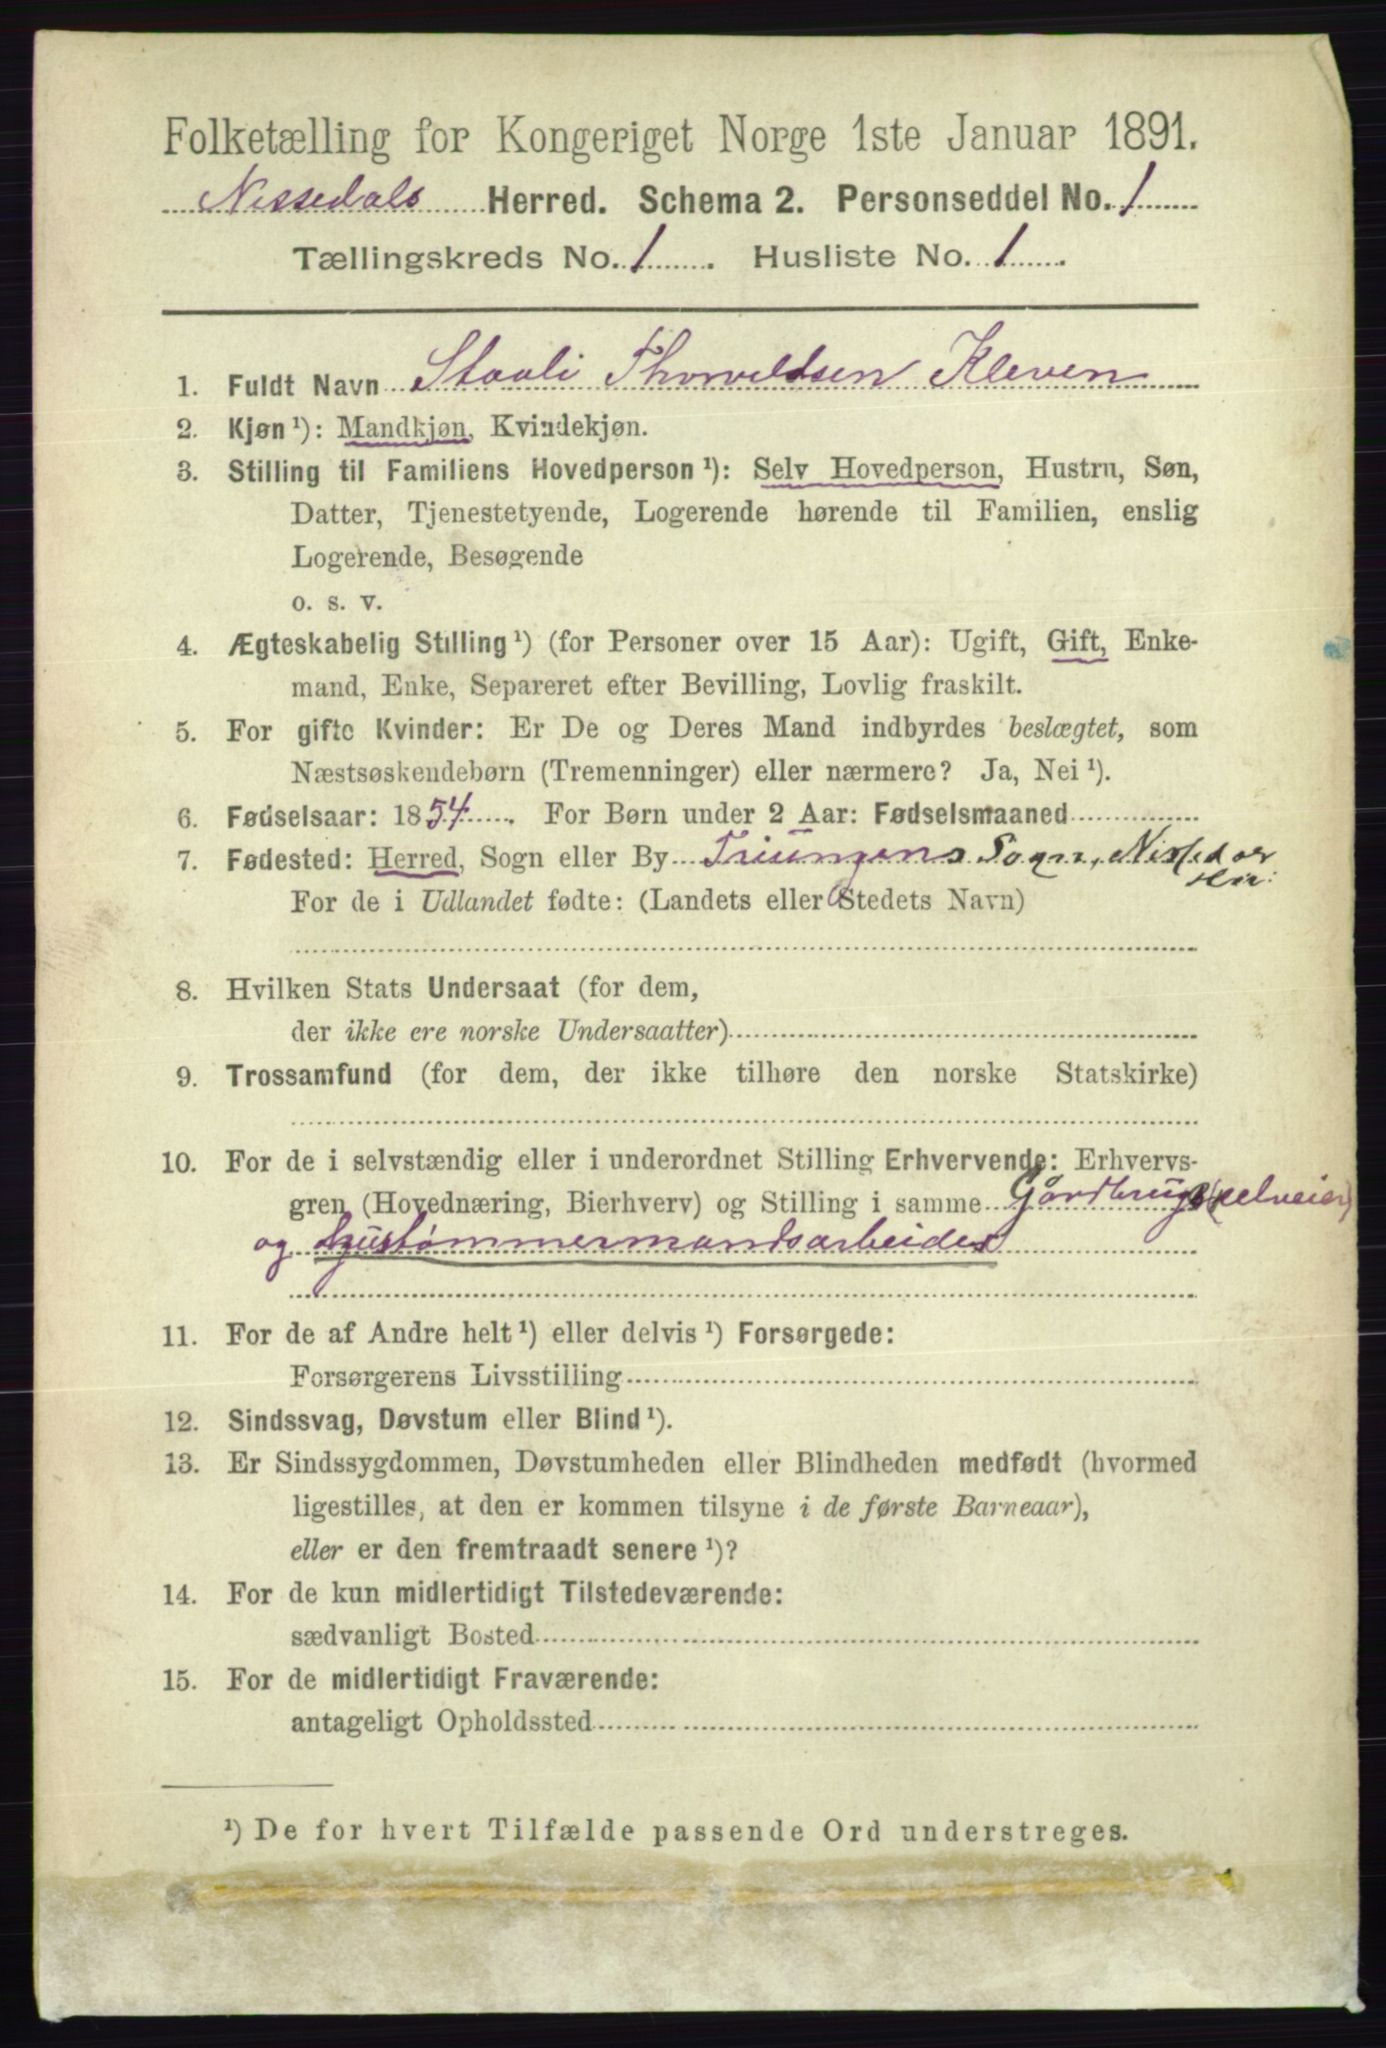 Folketælling for Kongeriget Norge 1ste Januar 1891.
Nissedals Herred. Schema 2. Personseddel No. 1
Tællingskreds No. 1. Husliste No. 1.
1. Fuldt Navn Staali Thorvildsen Kleven
2. Kjøn ¹): Mandkjøn, Kvindekjøn.
3. Stilling til Familiens Hovedperson ¹): Selv Hovedperson, Hustru, Søn,
Datter, Tjenestetyende, Logerende hørende til Familien, enslig
Logerende, Besøgende
o. s. v.
4. Ægteskabelig Stilling ¹) (for Personer over 15 Aar): Ugift, Gift, Enke-
mand, Enke, Separeret efter Bevilling, Lovlig fraskilt.
5. For gifte Kvinder: Er De og Deres Mand indbyrdes beslægtet, som
Næstsøskendebørn (Tremenninger) eller nærmere? Ja, Nei ¹).
6. Fødselsaar: 1854. For Børn under 2 Aar: Fødselsmaaned
7. Fødested: Herred, Sogn eller By Treungens Sogn,
For de i Udlandet fødte: (Landets eller Stedets Navn)
8. Hvilken Stats Undersaat (for dem,
der ikke ere norske Undersaatter)
9. Trossamfund (for dem, der ikke tilhøre den norske Statskirke)
10. For de i selvstændig eller i underordnet Stilling Erhvervende: Erhvervs-
gren (Hovednæring, Bierhverv) og Stilling i samme Gårdbruger (selveier)
og hustømmermandsarbeider
11. For de af Andre helt ¹) eller delvis ¹) Forsørgede:
Forsørgerens Livsstilling
12. Sindssvag, Døvstum eller Blind ¹).
13. Er Sindssygdommen, Døvstumheden eller Blindheden medfødt (hvormed
ligestilles, at den er kommen tilsyne i de første Barneaar),
eller er den fremtraadt senere ¹)?
14. For de kun midlertidigt Tilstedeværende:
sædvanligt Bosted
15. For de midlertidigt Fraværende:
antageligt Opholdssted
¹) De for hvert Tilfælde passende Ord understreges.